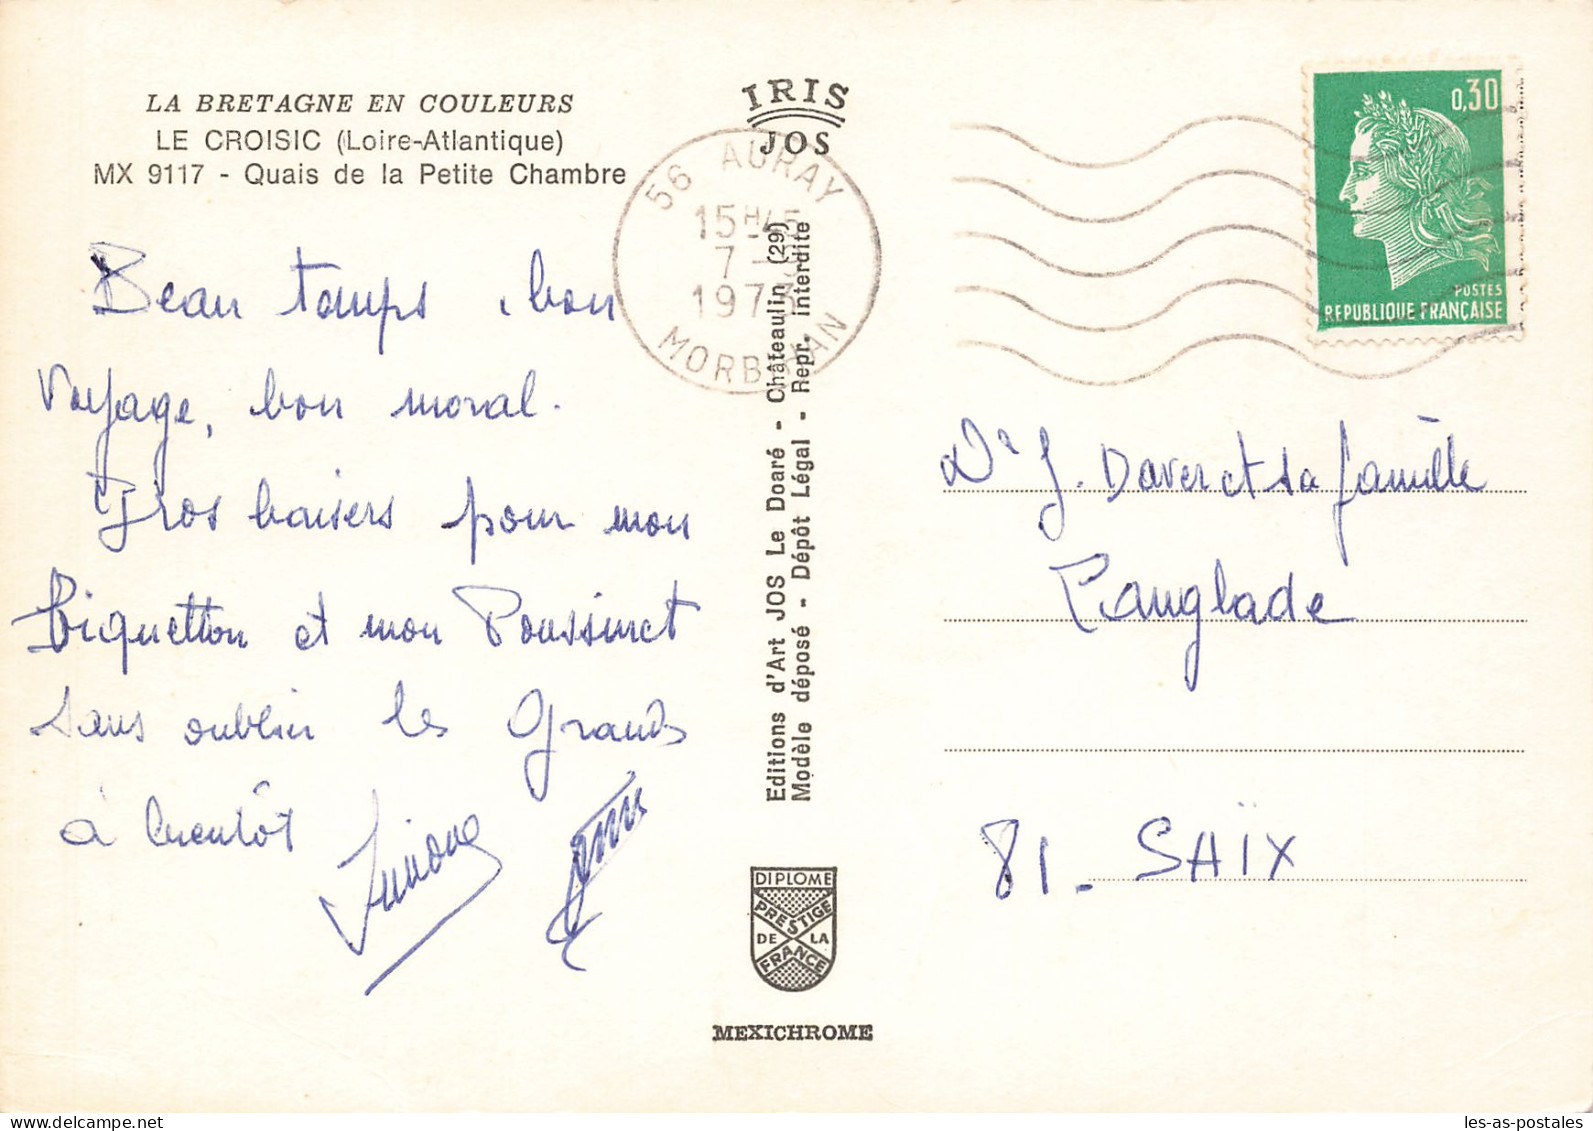 LA BRETAGNE EN COULEURS
LE CROISIC (Loire-Atlantique)
MX 9117 - Quais de la Petite Chambre
IRIS
JOS
56 AURAY
15H45
7 -
1973
MORBIHAN
0,30
POSTES
REPUBLIQUE FRANÇAISE
Beau temps, bon
voyage, bon moral.
Gros baisers pour mon
biquetton et mon Poussinet
sans oublier les Grands
à bientôt
Simone
Editions d'Art JOS Le Doaré - Châteaulin (29)
Modèle déposé - Dépôt Légal - Repr. interdite
Dr J. Daver et sa famille
Langlade
81. SAÏX
DIPLOME
PRESTIGE
DE LA
FRANCE
MEXICHROME
les-as-postales